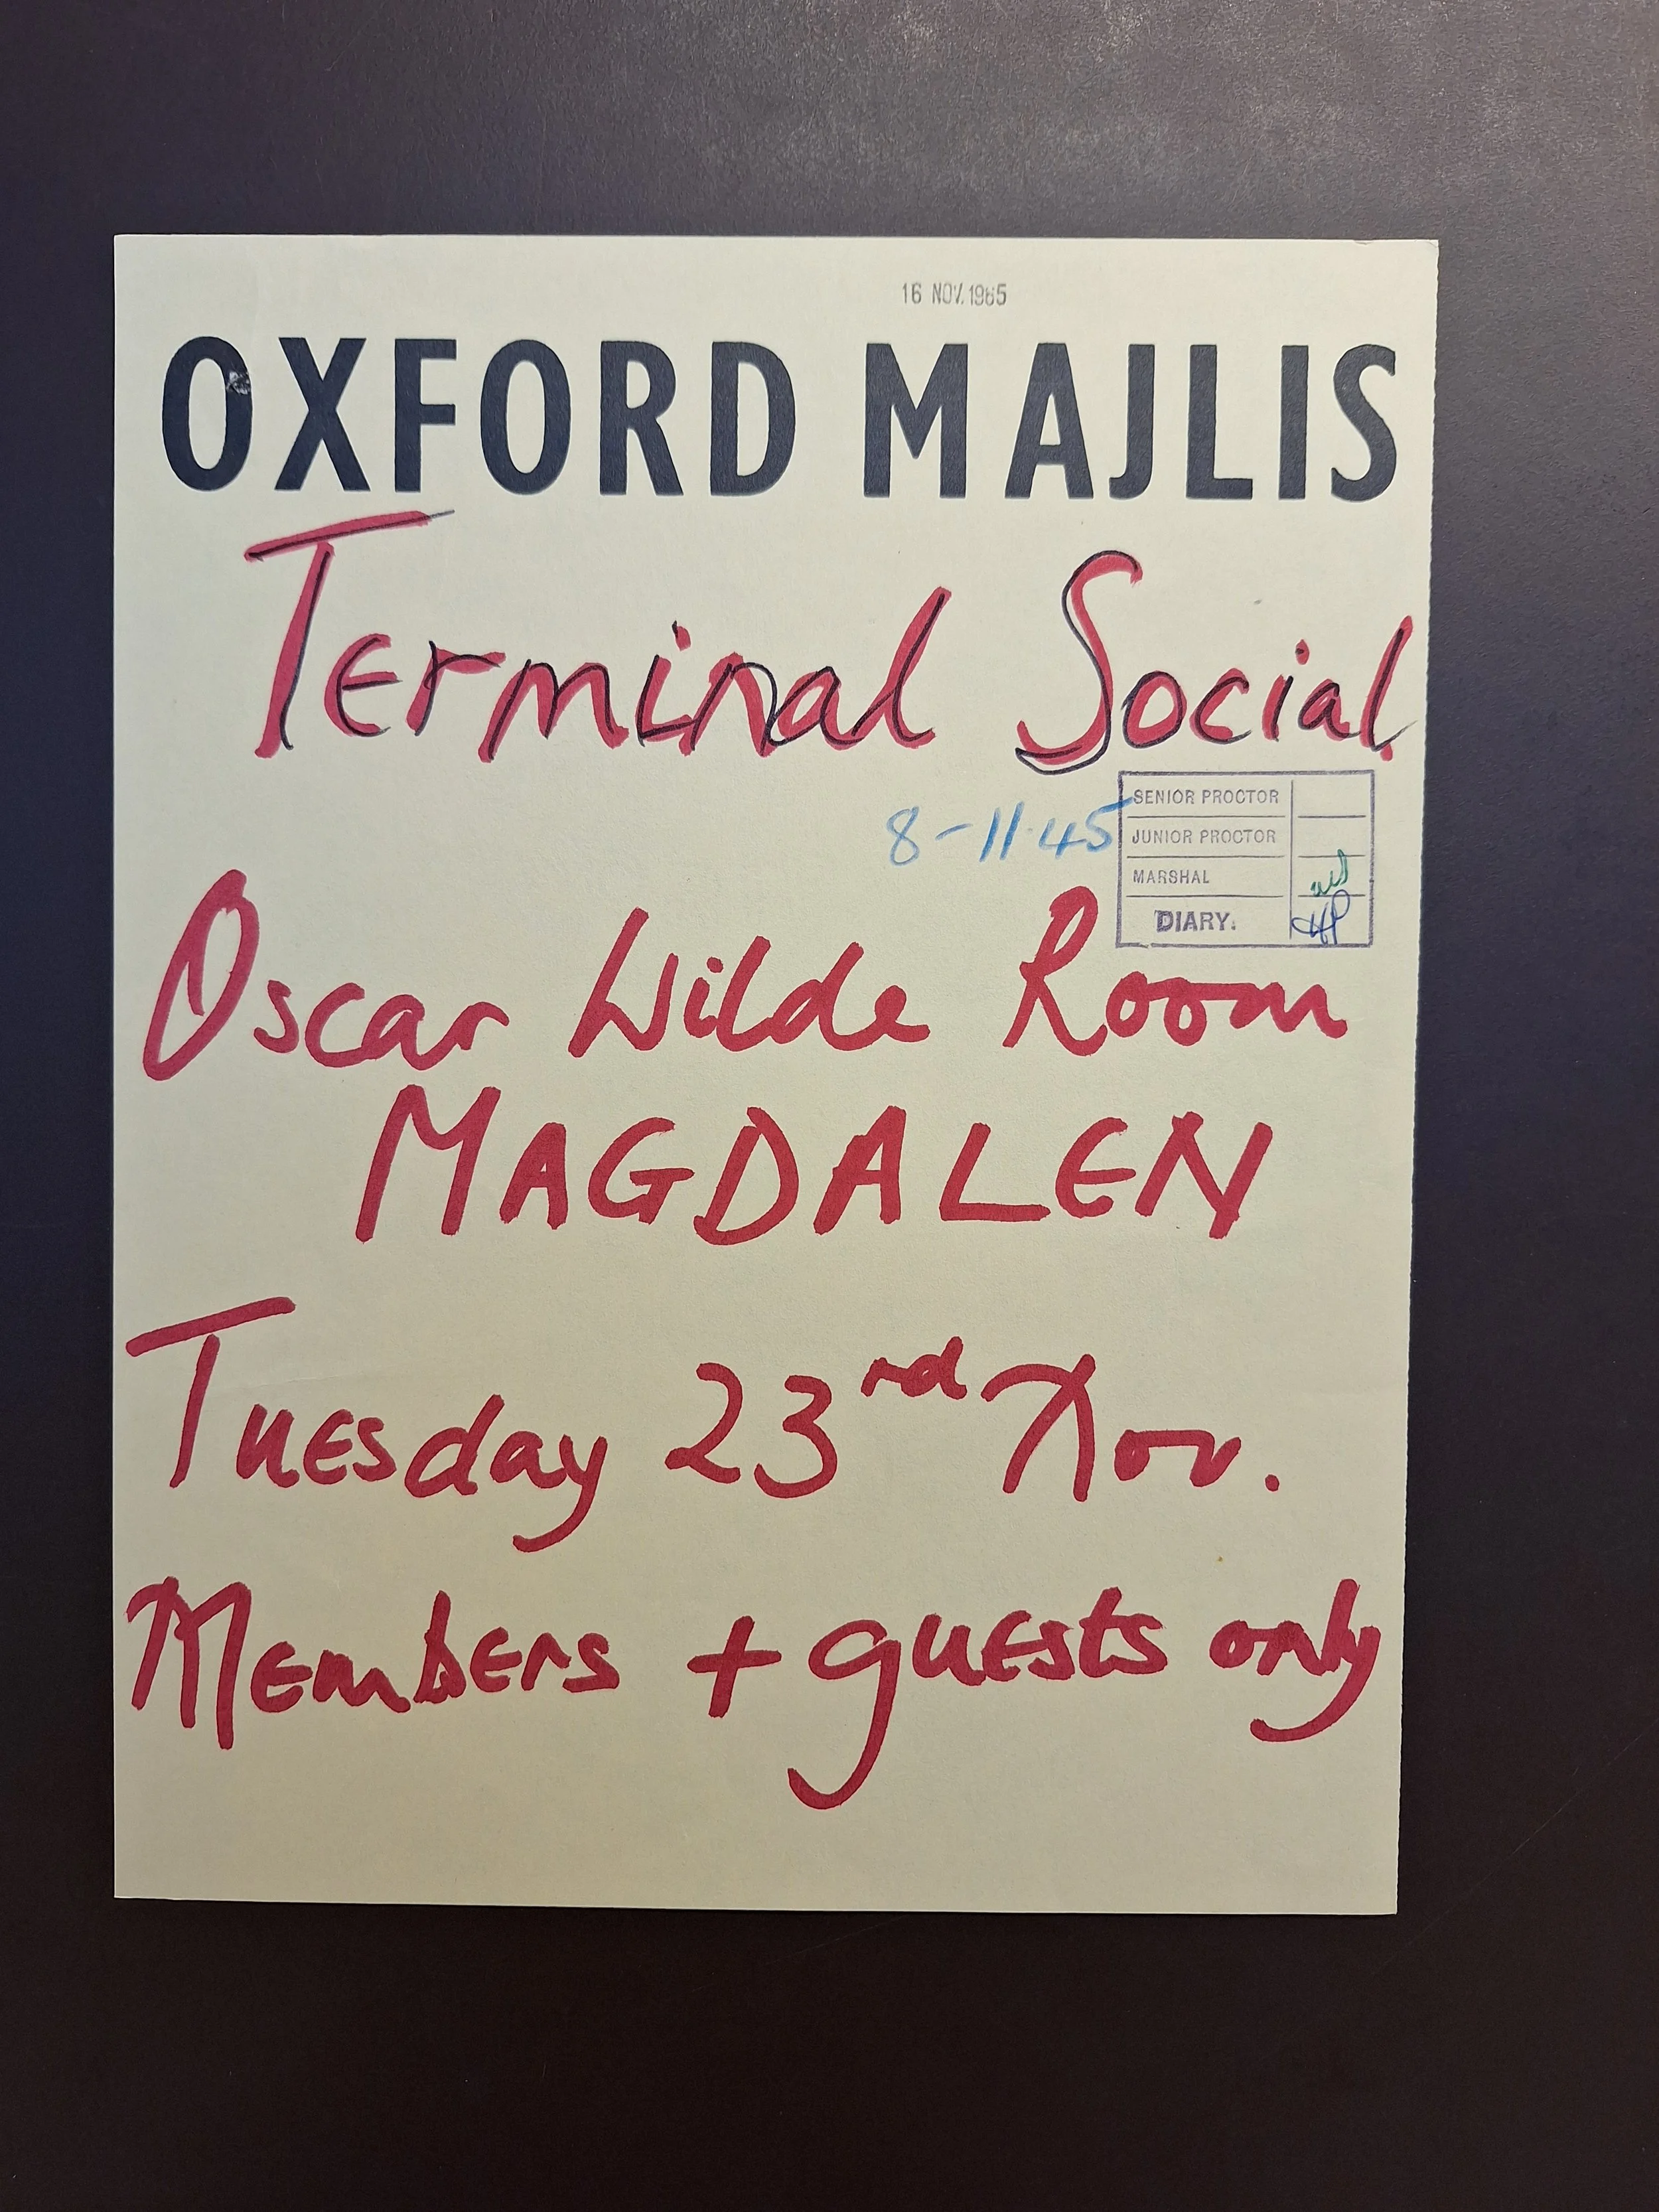 16 NOV. 1965
OXFORD MAJLIS
Terminal Social
8-11.45
SENIOR PROCTOR
JUNIOR PROCTOR
MARSHAL
DIARY.
Oscar Wilde Room
MAGDALEN
Tuesday 23rd Nov.
Members + guests only